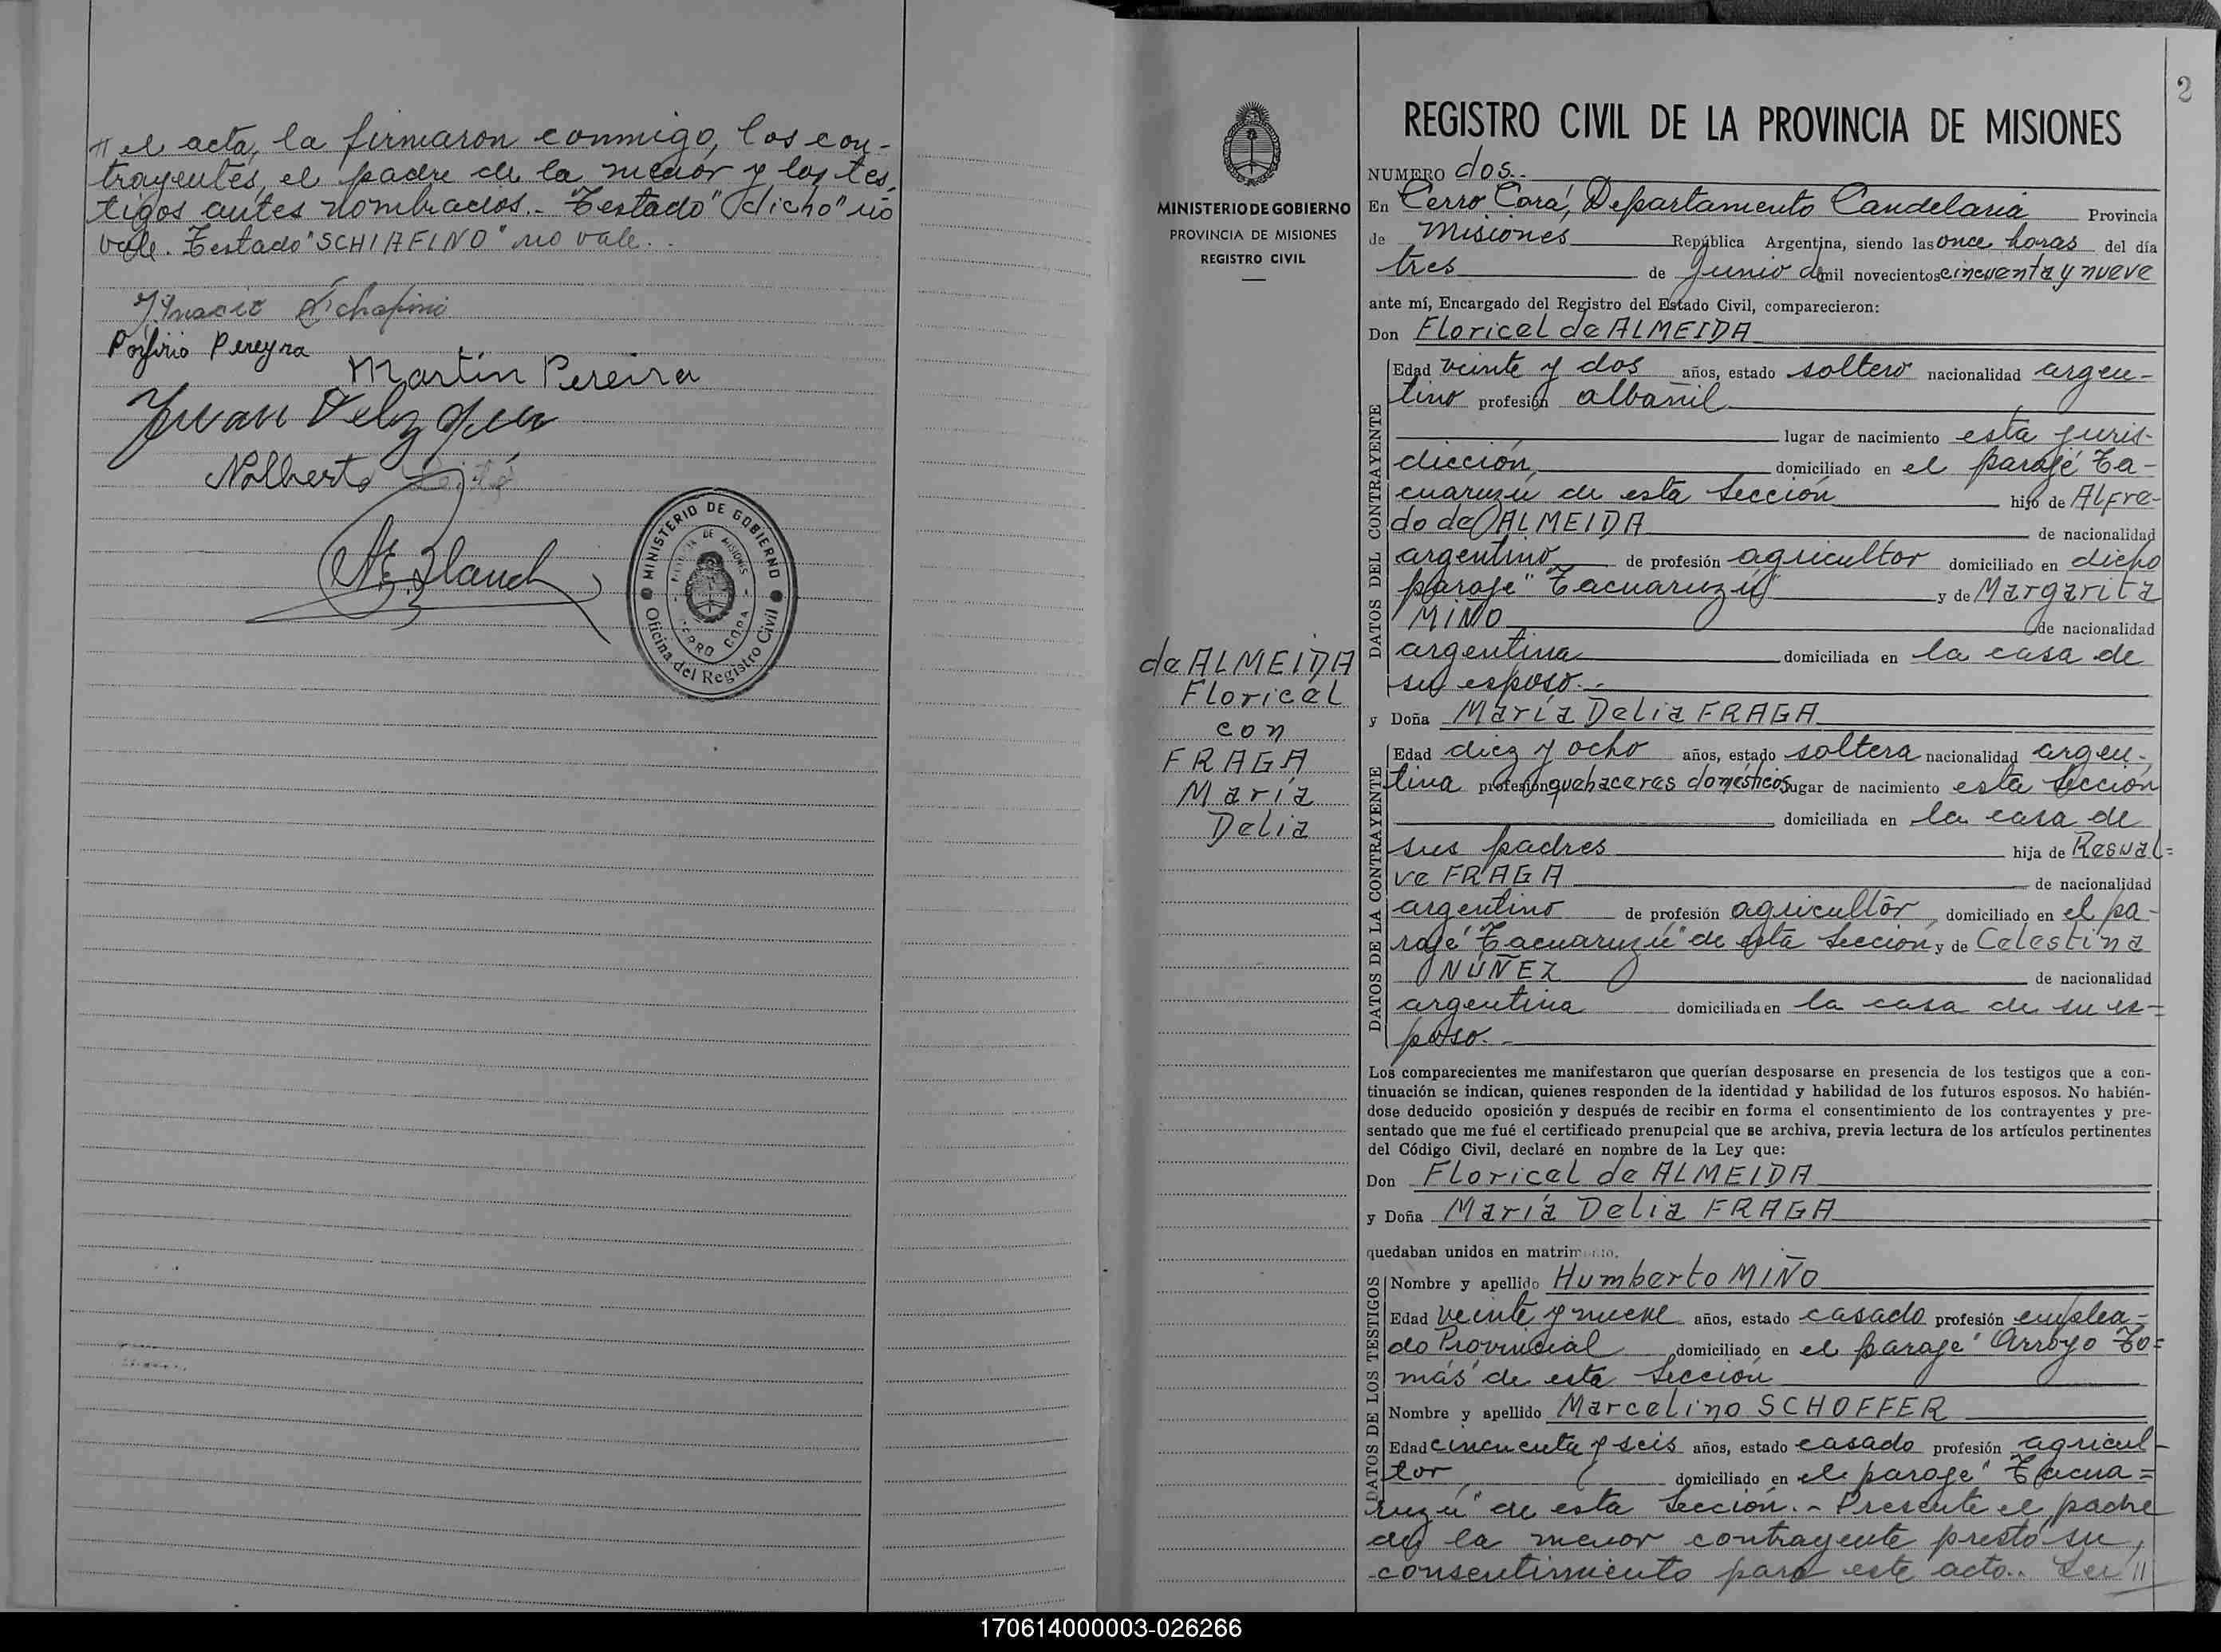 // el acta, la firmaron conmigo, los con-
trayentes, el padre de la menor y los tes-
tigos antes nombrados.- Testado "dicho" no
vale. Testado "SCHIAFINO" no vale.-
Ignacio Schafino
Porfirio Pereyra
Martín Pereira
Juan
Nolberto
MINISTERIO DE GOBIERNO
PROVINCIA DE MISIONES
CERRO CORA
Oficina del Registro Civil
2
MINISTERIO DE GOBIERNO
PROVINCIA DE MISIONES
REGISTRO CIVIL
de ALMEIDA
Floricel
con
FRAGA
María
Delia
REGISTRO CIVIL DE LA PROVINCIA DE MISIONES
NUMERO dos.-
En Cerro Corá, Departamento Candelaria Provincia
de Misiones República Argentina, siendo las once horas del día
tres de Junio de mil novecientos cincuenta y nueve
ante mí, Encargado del Registro del Estado Civil, comparecieron:
Don Floricel de ALMEIDA
DATOS DEL CONTRAYENTE
Edad veinte y dos años, estado soltero nacionalidad argen-
tino profesión albañil
lugar de nacimiento esta juris-
dicción domiciliado en el paraje Ta-
cuaruzú de esta Sección hijo de Alfre-
do de ALMEIDA de nacionalidad
argentino de profesión agricultor domiciliado en dicho
paraje "Tacuaruzú" y de Margarita
MIÑO de nacionalidad
argentina domiciliada en la casa de
su esposo.-
y Doña María Delia FRAGA
DATOS DE LA CONTRAYENTE
Edad diez y ocho años, estado soltera nacionalidad argen-
tina profesión quehaceres domésticos lugar de nacimiento esta Sección
domiciliada en la casa de
sus padres hija de Rosual=
ve FRAGA de nacionalidad
argentino de profesión agricultor, domiciliado en el pa-
raje "Tacuaruzú" de esta Sección y de Celestina
NÚÑEZ de nacionalidad
argentina domiciliada en la casa de su es=
poso.-
Los comparecientes me manifestaron que querían desposarse en presencia de los testigos que a con-
tinuación se indican, quienes responden de la identidad y habilidad de los futuros esposos. No habién-
dose deducido oposición y después de recibir en forma el consentimiento de los contrayentes y pre-
sentado que me fué el certificado prenupcial que se archiva, previa lectura de los artículos pertinentes
del Código Civil, declaré en nombre de la Ley que:
Don Floricel de ALMEIDA
y Doña María Delia FRAGA
quedaban unidos en matrimonio.
DATOS DE LOS TESTIGOS
Nombre y apellido Humberto MIÑO
Edad veinte y nueve años, estado casado profesión emplea=
do Provincial domiciliado en el paraje "Arroyo To=
más" de esta Sección
Nombre y apellido Marcelino SCHOFFER
Edad cincuenta y seis años, estado casado profesión agricul-
tor domiciliado en el paraje "Tacua=
ruzú" de esta Sección.- Presente el padre
de la menor contrayente prestó su
consentimiento para este acto.. Leí //
170614000003-026266